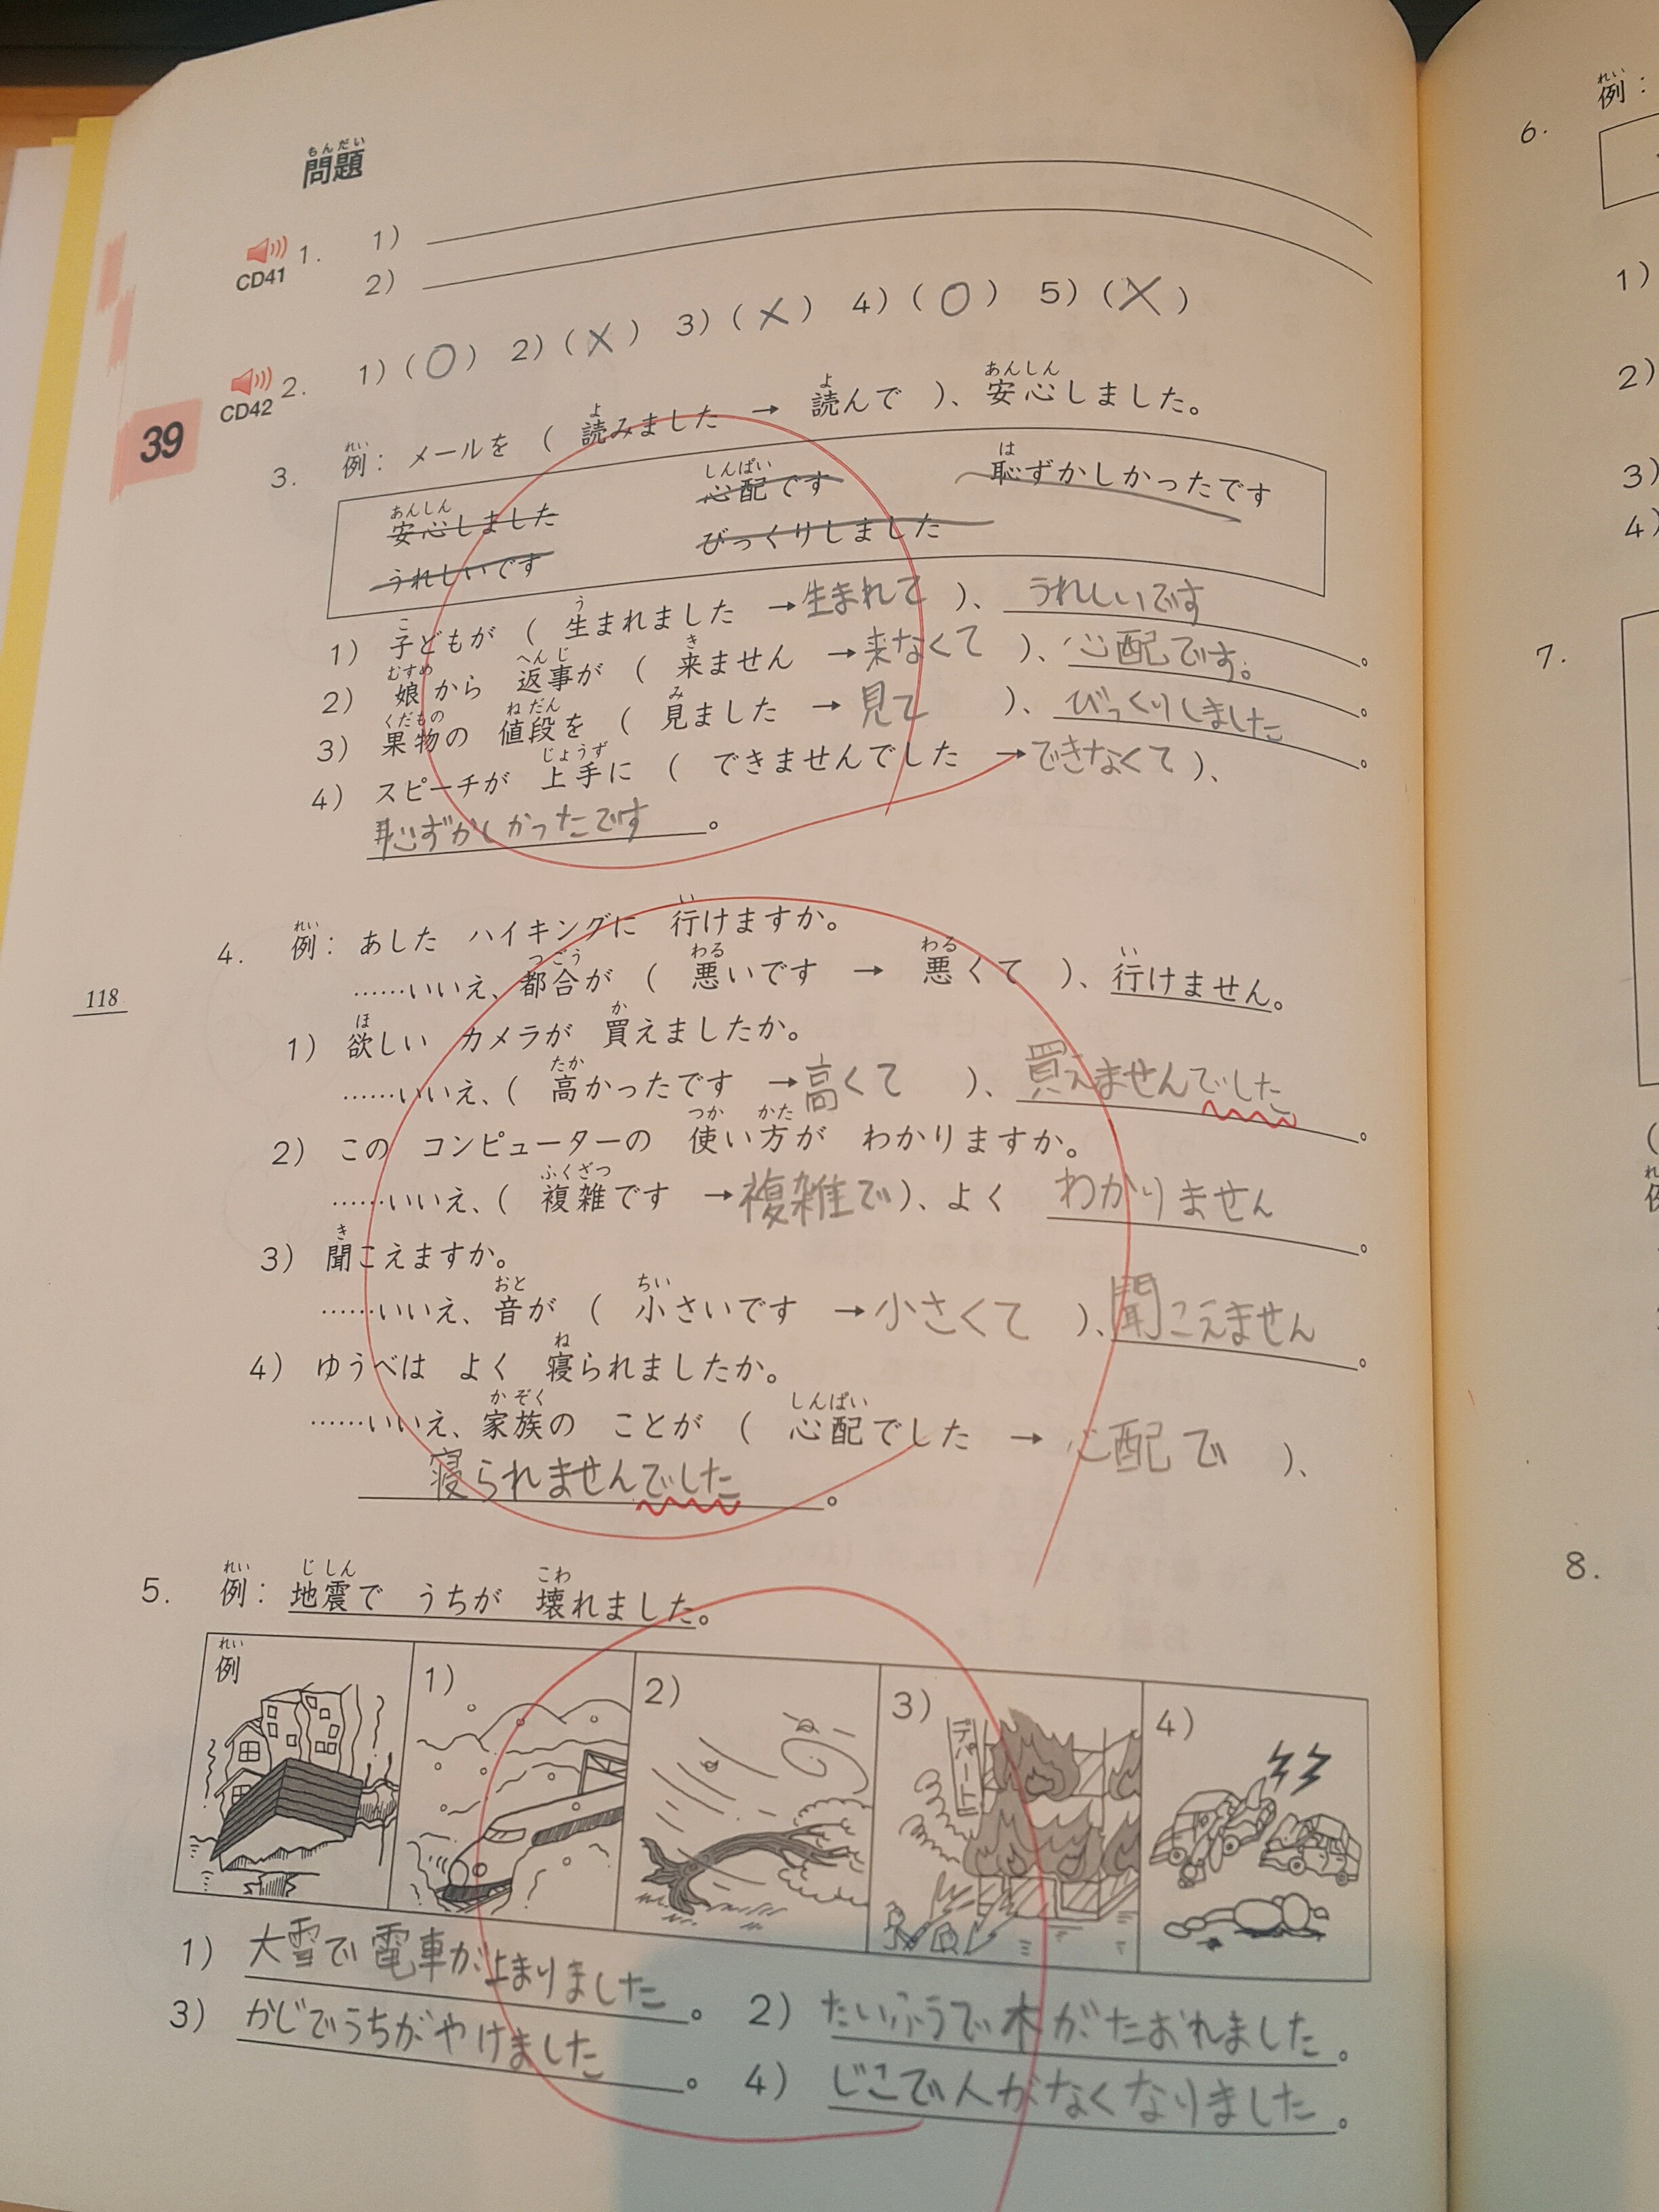 もんだい
問題
CD41 1. 1)
2)
CD42 2. 1) (○) 2) (×) 3) (×) 4) (○) 5) (×)
39
3. 例: メールを ( 読みました → 読んで )、安心しました。
れい よ よ あんしん
安心しました 心配です 恥ずかしかったです
あんしん しんぱい は
うれしいです びっくりしました
1) 子どもが ( 生まれました → 生まれて )、うれしいです。
こ う
2) 娘から 返事が ( 来ません → 来なくて )、心配です。
むすめ へんじ き
3) 果物の 値段を ( 見ました → 見て )、びっくりしました。
くだもの ねだん み
4) スピーチが 上手に ( できませんでした → できなくて )、
じょうず
恥ずかしかったです。
4. 例: あした ハイキングに 行けますか。
れい い
……いいえ、都合が ( 悪いです → 悪くて )、行けません。
つごう わる わる い
1) 欲しい カメラが 買えましたか。
ほ か
……いいえ、( 高かったです → 高くて )、買えませんでした。
たか
2) この コンピューターの 使い方が わかりますか。
つか かた
……いいえ、( 複雑です → 複雑で )、よく わかりません。
ふくざつ
3) 聞こえますか。
き
……いいえ、音が ( 小さいです → 小さくて )、聞こえません。
おと ちい
4) ゆうべは よく 寝られましたか。
ね
……いいえ、家族の ことが ( 心配でした → 心配で )、
かぞく しんぱい
寝られませんでした。
118
5. 例: 地震で うちが 壊れました。
れい じしん こわ
例 1) 2) 3) 4)
れい
デパート
1) 大雪で電車が止まりました。 2) たいふうで木がたおれました。
3) かじでうちがやけました。 4) じこで人がなくなりました。
例:
れい
6.
1)
2)
3)
4)
7.
(
8.